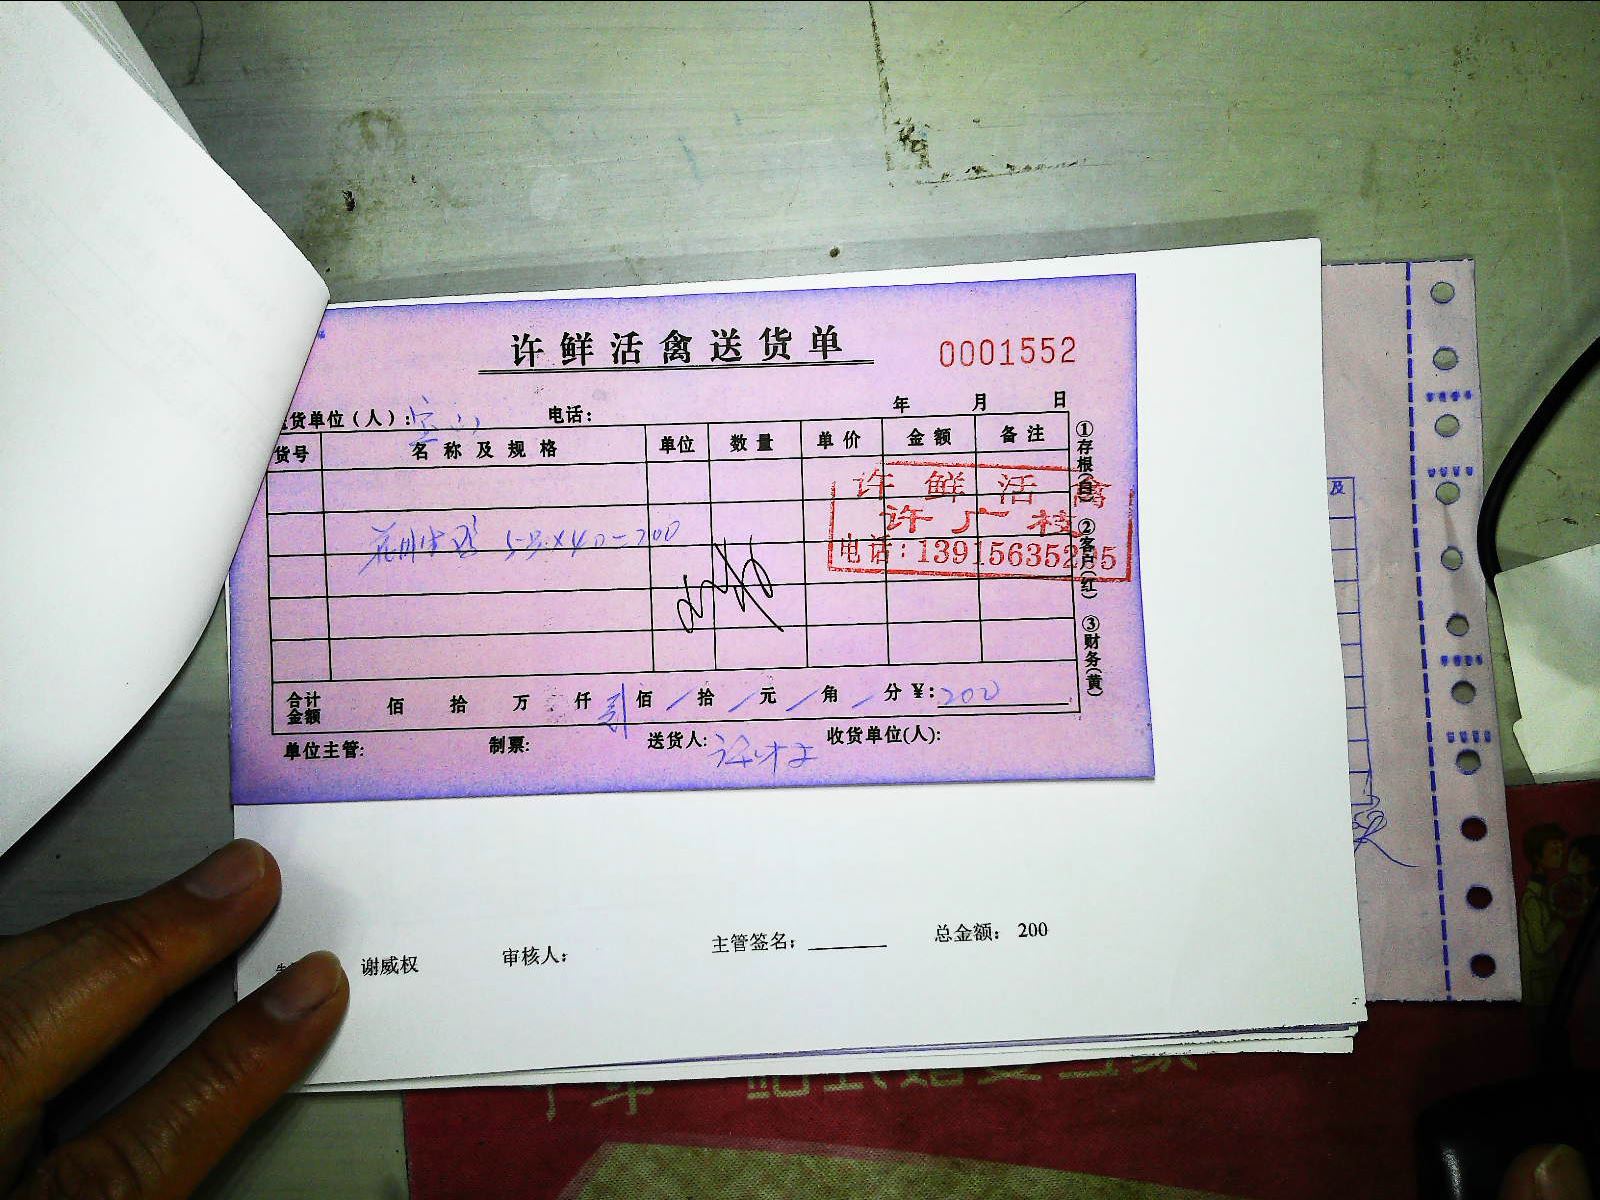 许鲜活禽送货单
0001552
货单位（人）： 电话： 年 月 日
货号 名称及规格 单位 数量 单价 金额 备注
5只×40=200
许鲜活禽
许广枝
电话：13915635295
①存根(白) ②客户(红) ③财务(黄)
合计金额 佰 拾 万 仟 贰佰 / 拾 / 元 / 角 / 分 ¥：200
单位主管： 制票： 送货人： 收货单位(人)：
谢威权 审核人： 主管签名： 总金额： 200
及